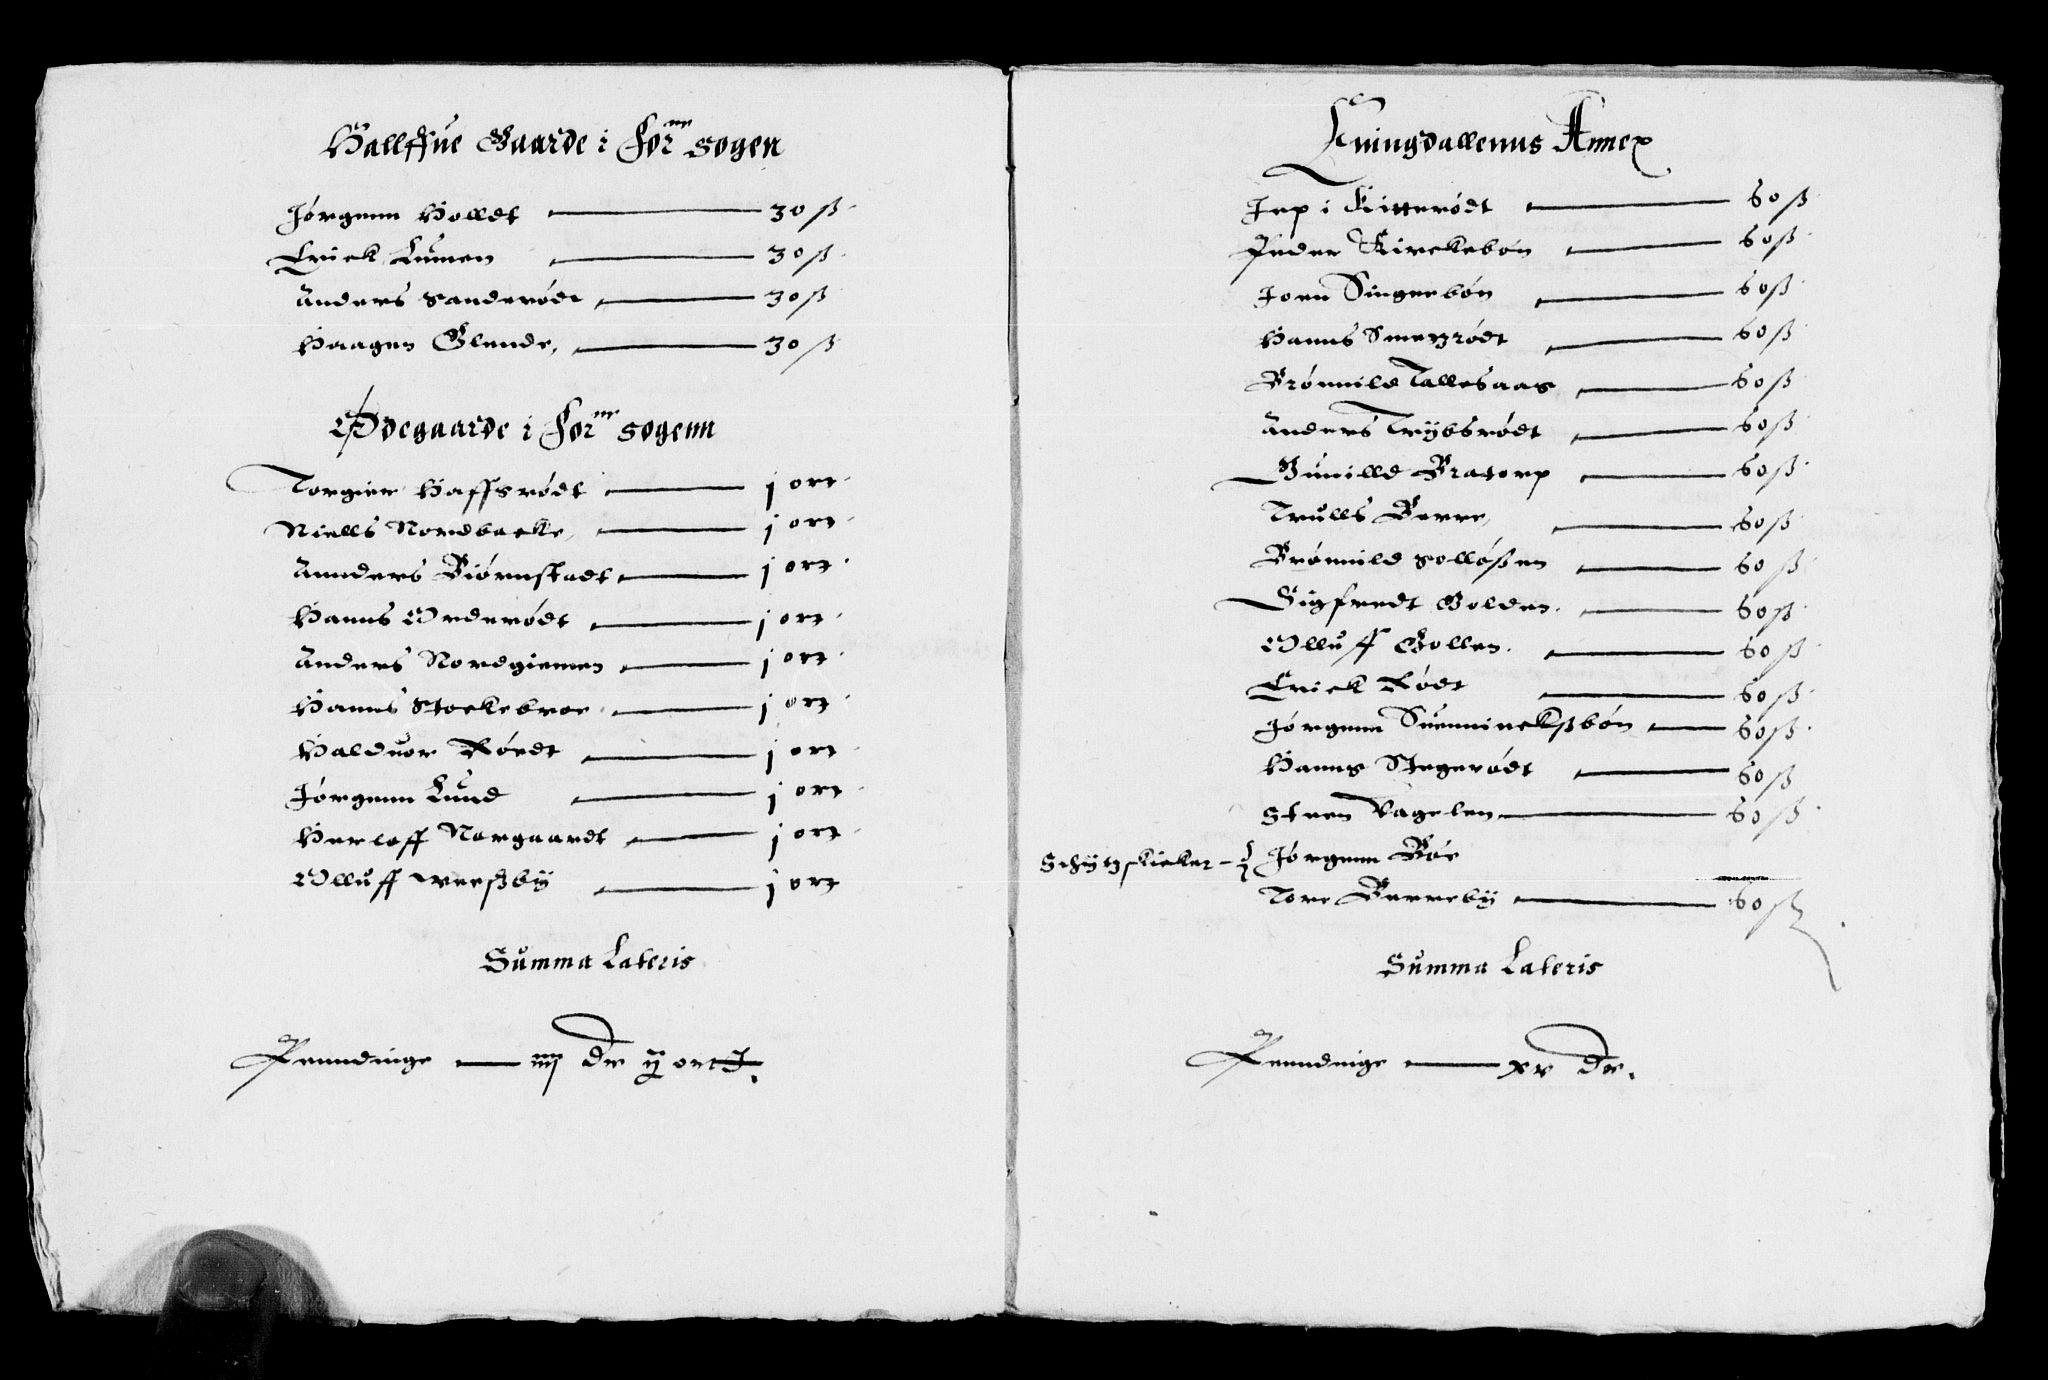 Hallffue Gaarde i for^ne sogen
Jørgenn Holldt — 30 ß
Erick Lunen — 30 ß
Anders Sanderødt — 30 ß
Haagen Glende — 30 ß
Ødegaarde i for^ne sogenn
Torgier Haffsrødt — j ort
Niells Nordbacke — j ort
Annders Biørnstadt — j ort
Hanns Orderødt — j ort
Anders Nordgiemen — j ort
Hanns Stockebroe — j ort
Halduor Røedt — j ort
Jørgenn Lund — j ort
Herloff Norgaardt — j ort
Olluff Weeßby — j ort
Summa Lateris
Penndinge — iiij dr ij ortt.
Kuingdallenns Annex
Jep i Kitterødt — 60 ß
Peder Kirckebøn — 60 ß
Joen Singerbøn — 60 ß
Hanns Smetzrødt — 60 ß
Brønnild Tallesaas — 60 ß
Anders Trybsrødt — 60 ß
Gunilld Bratorp — 60 ß
Trulls Berre — 60 ß
Brønnild Solløßen — 60 ß
Sigfredt Holden — 60 ß
Olluff Gollen — 60 ß
Erick Rødt — 60 ß
Jørgenn Suennineksbøn — 60 ß
Hanns Stegerødt — 60 ß
Steen Vagelen — 60 ß
Schytzskicker – Jørgenn Bøe
Tore Berreby — 60 ß
Summa Lateris
Penndinge — xv dr.